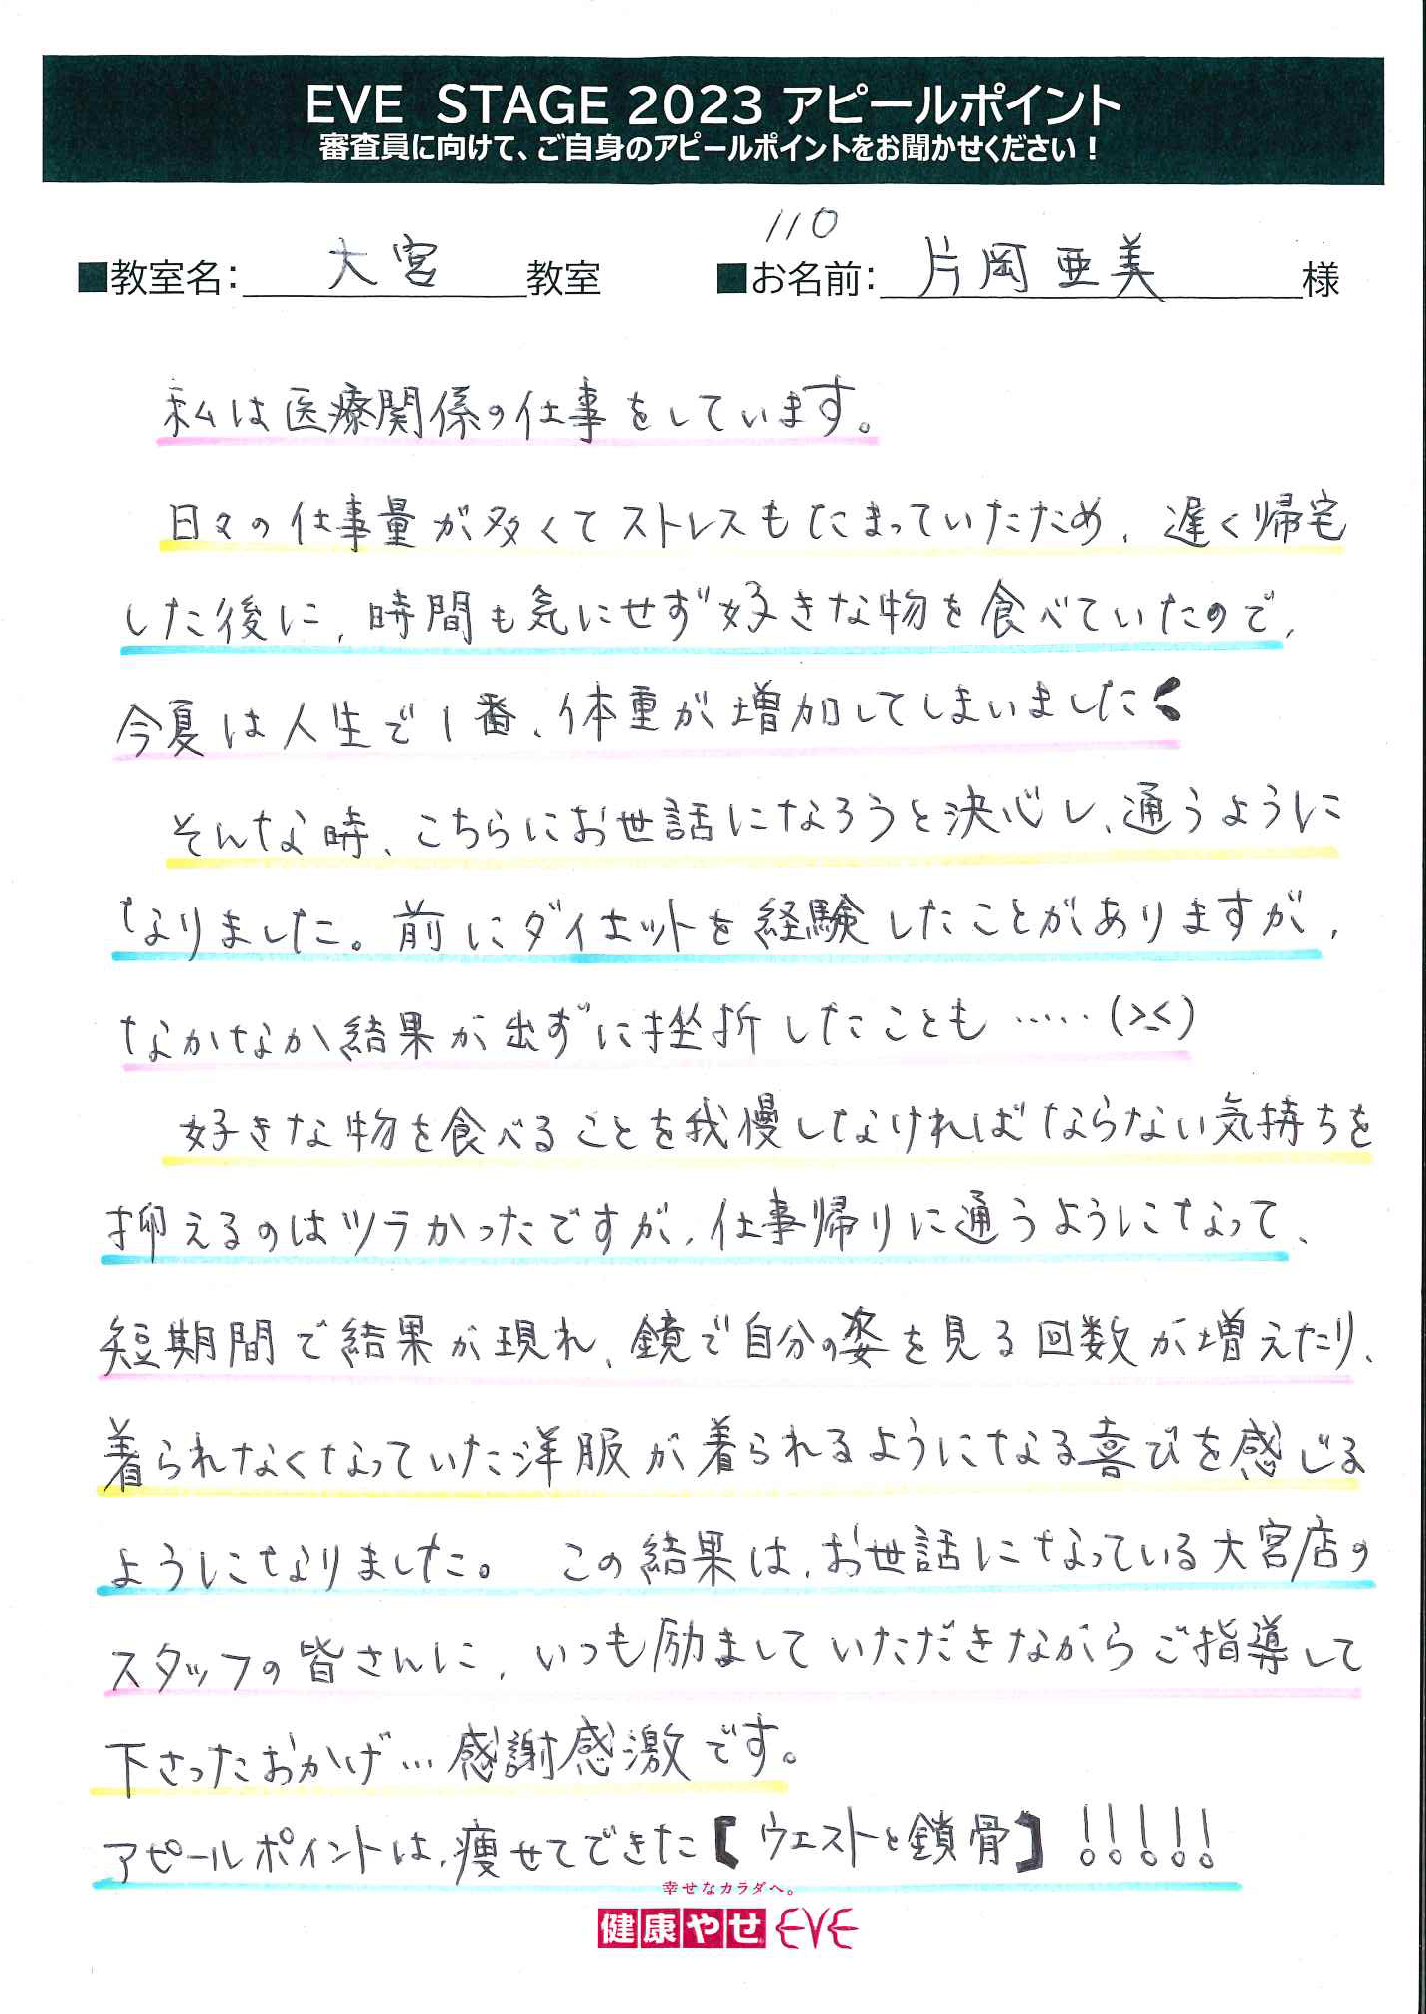 EVE STAGE 2023 アピールポイント
審査員に向けて、ご自身のアピールポイントをお聞かせください！
110
■教室名：大宮教室 ■お名前：片岡亜美様
私は医療関係の仕事をしています。
日々の仕事量が多くてストレスもたまっていたため、遅く帰宅
した後に、時間も気にせず好きな物を食べていたので、
今夏は人生で1番、体重が増加してしまいました
そんな時、こちらにお世話になろうと決心し、通うように
なりました。前にダイエットを経験したことがありますが、
なかなか結果が出ずに挫折したことも……(>_<)
好きな物を食べることを我慢しなければならない気持ちを
抑えるのはツラかったですが、仕事帰りに通うようになって、
短期間で結果が現れ、鏡で自分の姿を見る回数が増えたり、
着られなくなっていた洋服が着られるようになる喜びを感じる
ようになりました。 この結果は、お世話になっている大宮店の
スタッフの皆さんに、いつも励ましていただきながらご指導して
下さったおかげ…感謝感激です。
アピールポイントは、痩せてできた【ウエストと鎖骨】!!!!!
幸せなカラダへ。
健康やせ EVE